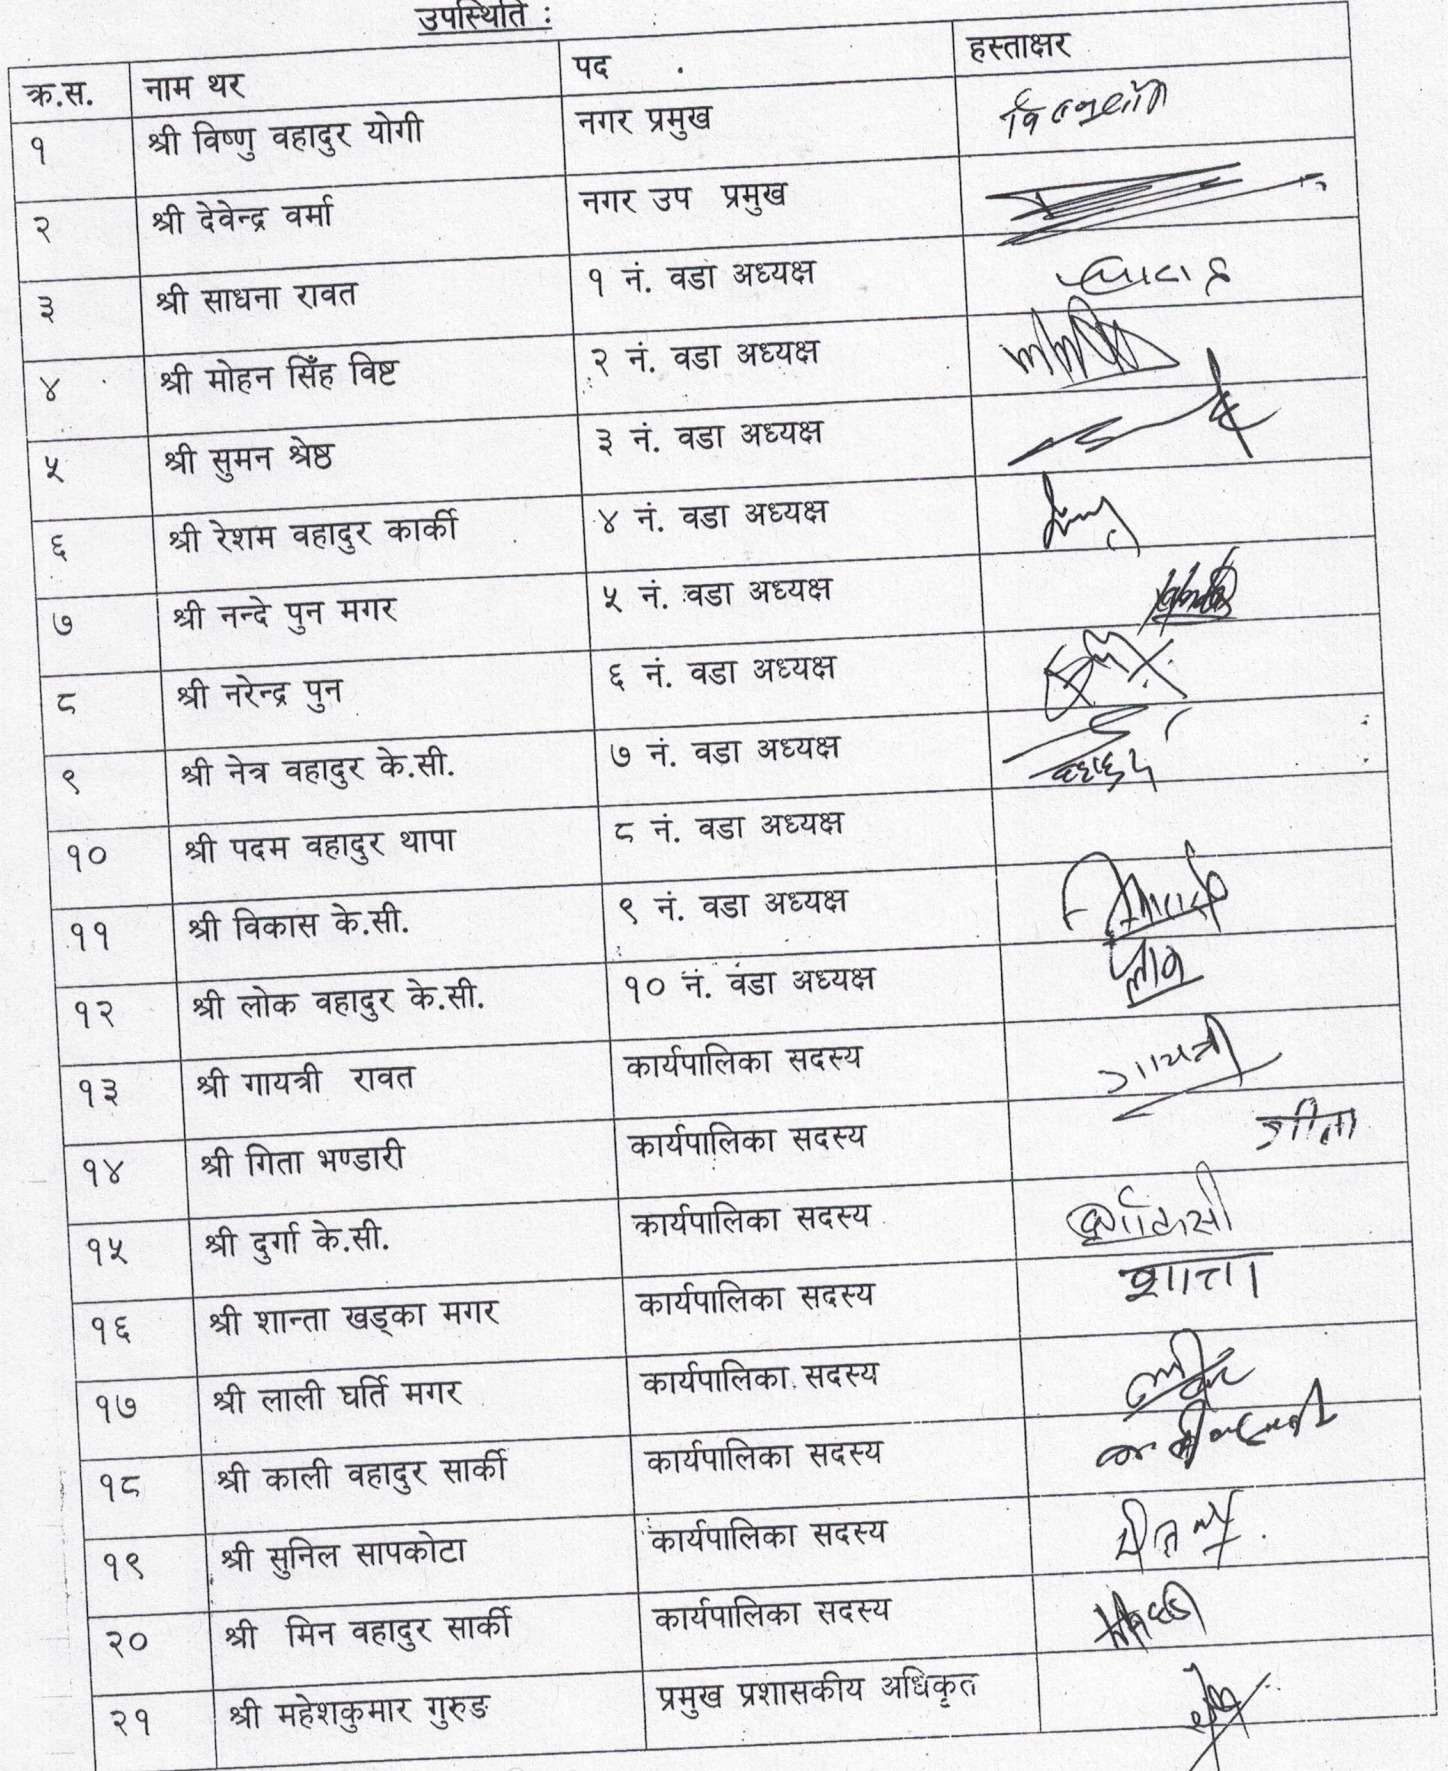 उपस्थिति :
क्र.स. नाम थर पद हस्ताक्षर
१ श्री विष्णु वहादुर योगी नगर प्रमुख
२ श्री देवेन्द्र वर्मा नगर उप प्रमुख
३ श्री साधना रावत १ नं. वडा अध्यक्ष
४ श्री मोहन सिँह विष्ट २ नं. वडा अध्यक्ष
५ श्री सुमन श्रेष्ठ ३ नं. वडा अध्यक्ष
६ श्री रेशम वहादुर कार्की ४ नं. वडा अध्यक्ष
७ श्री नन्दे पुन मगर ५ नं. वडा अध्यक्ष
८ श्री नरेन्द्र पुन ६ नं. वडा अध्यक्ष
९ श्री नेत्र वहादुर के.सी. ७ नं. वडा अध्यक्ष
१० श्री पदम वहादुर थापा ८ नं. वडा अध्यक्ष
११ श्री विकास के.सी. ९ नं. वडा अध्यक्ष
१२ श्री लोक वहादुर के.सी. १० नं. वडा अध्यक्ष
१३ श्री गायत्री रावत कार्यपालिका सदस्य गायत्री
१४ श्री गिता भण्डारी कार्यपालिका सदस्य गीता
१५ श्री दुर्गा के.सी. कार्यपालिका सदस्य
१६ श्री शान्ता खड्का मगर कार्यपालिका सदस्य शान्ता
१७ श्री लाली घर्ति मगर कार्यपालिका सदस्य
१८ श्री काली वहादुर सार्की कार्यपालिका सदस्य
१९ श्री सुनिल सापकोटा कार्यपालिका सदस्य
२० श्री मिन वहादुर सार्की कार्यपालिका सदस्य
२१ श्री महेशकुमार गुरुङ प्रमुख प्रशासकीय अधिकृत